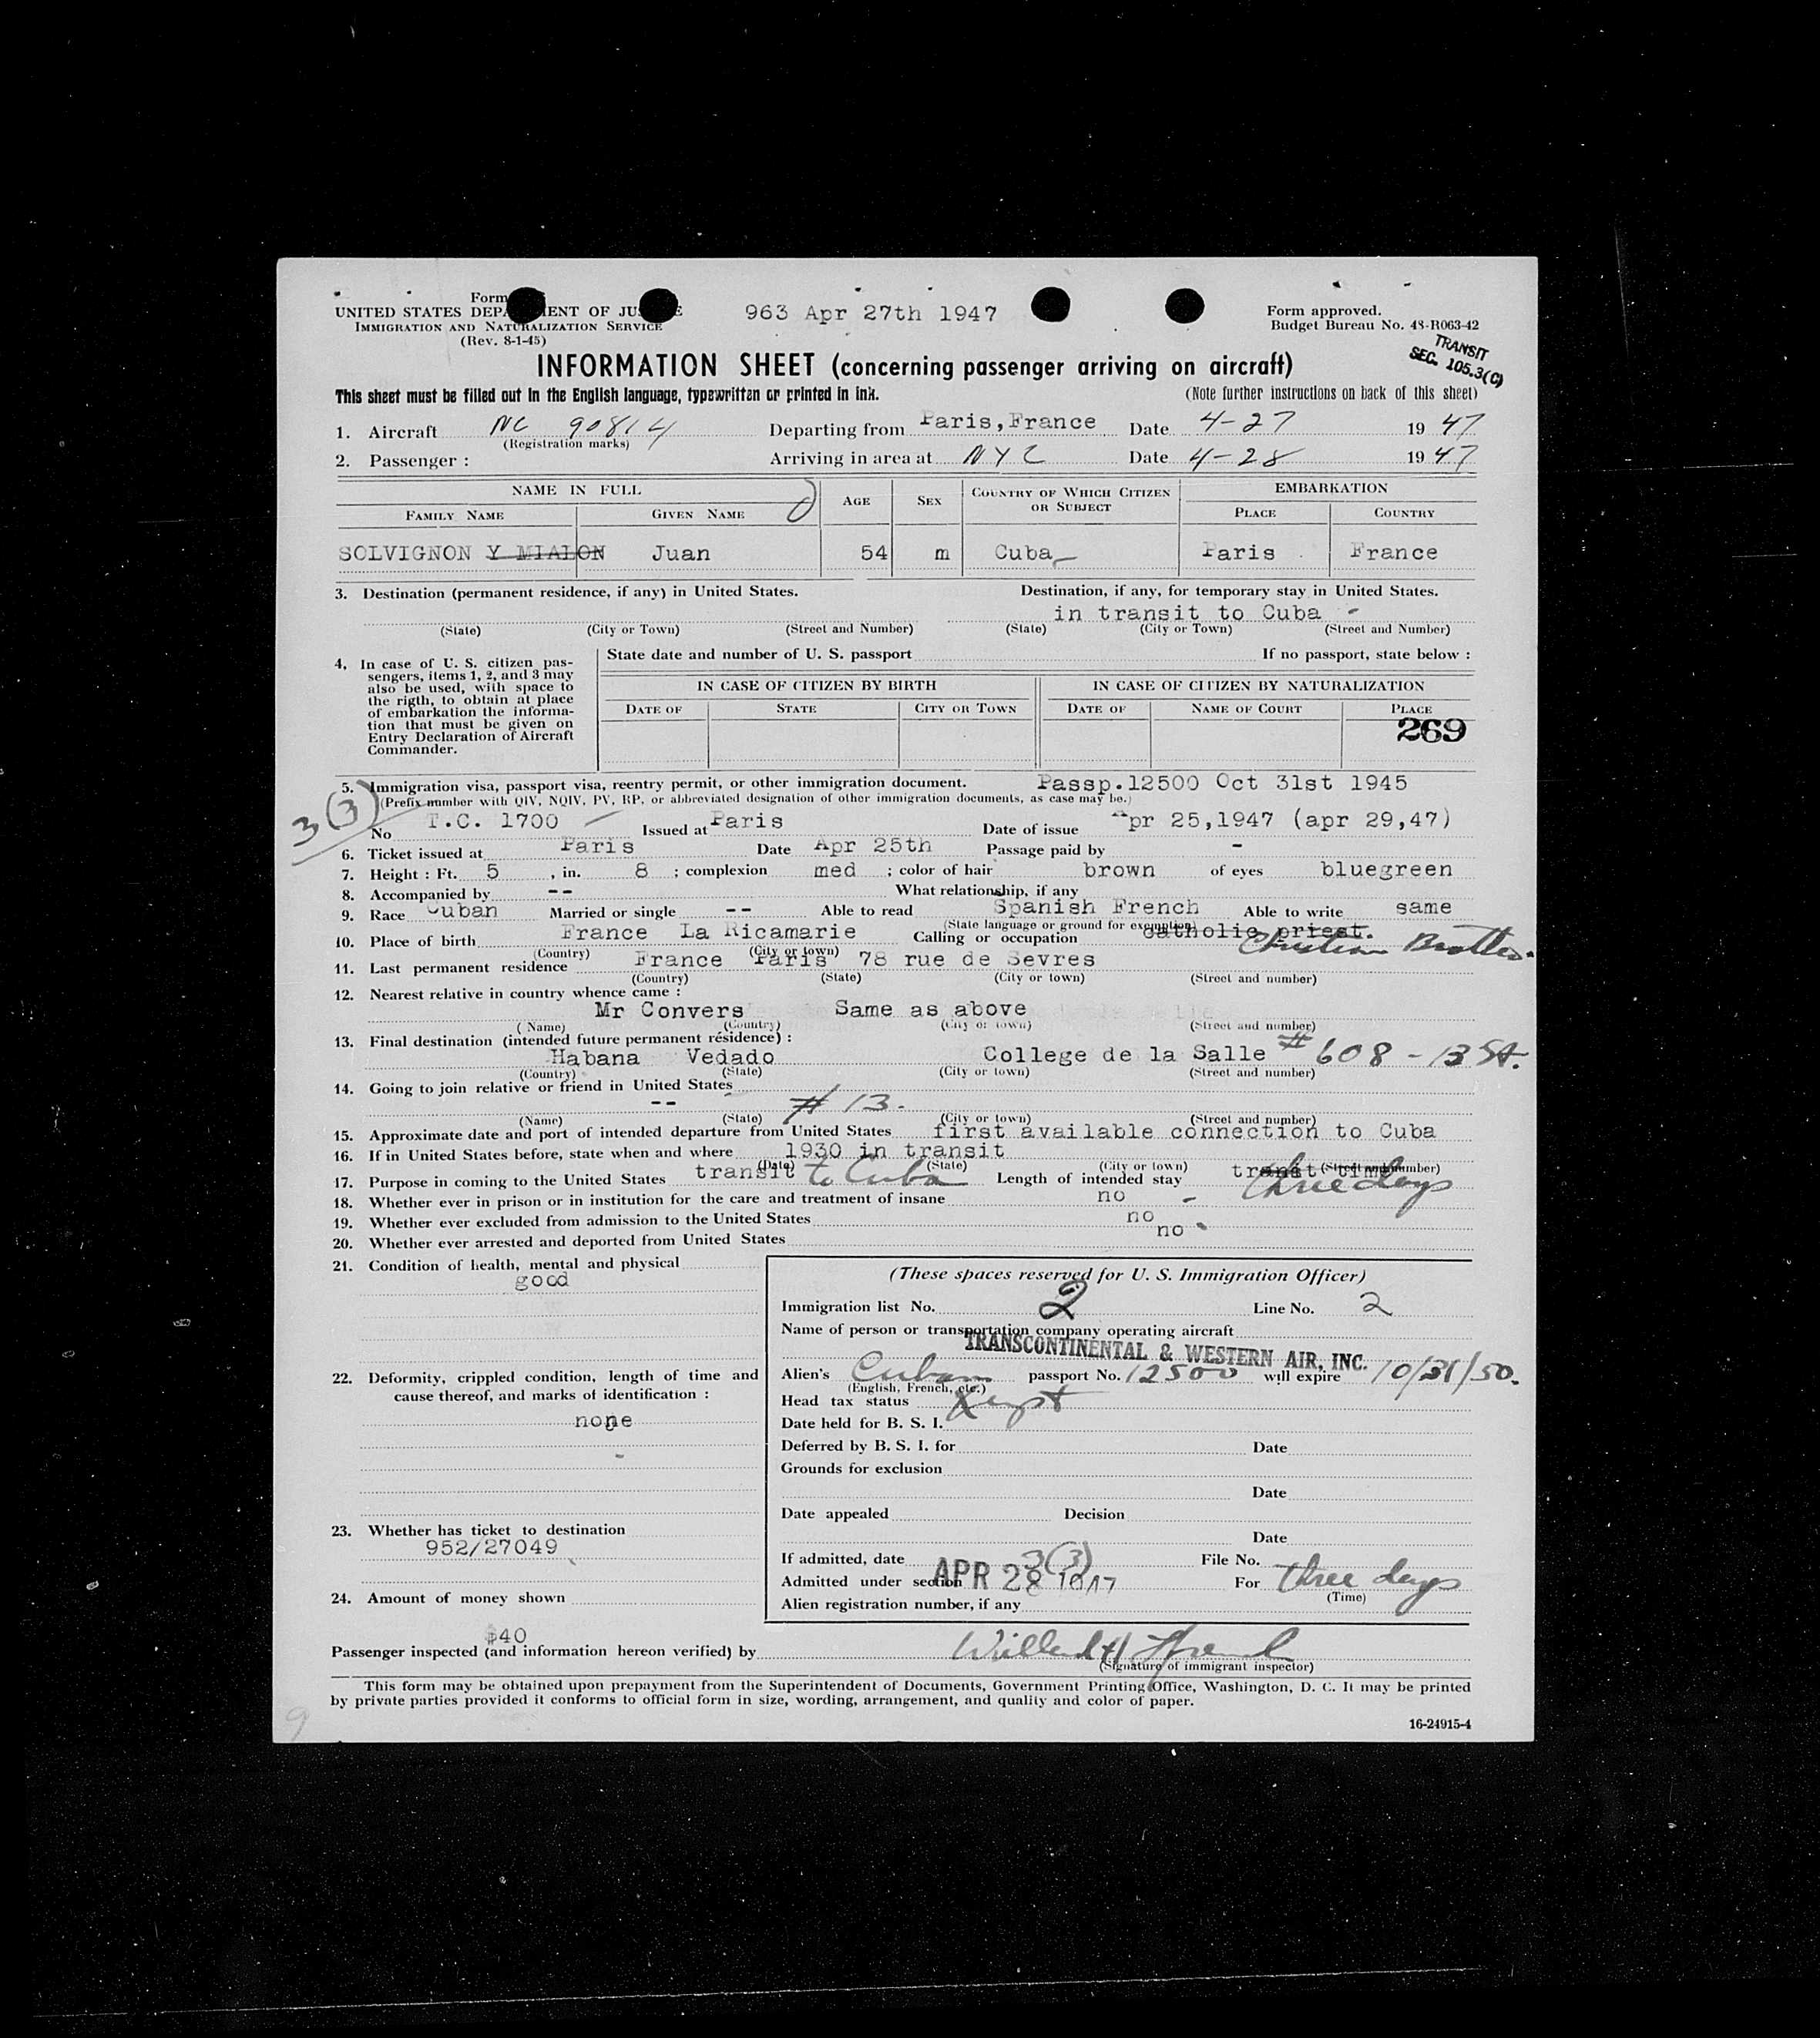 Form
UNITED STATES DEPA MENT OF JUS E
963 Apr 27th 1947
Form approved.
IMMIGRATION AND NATURALIZATION SERVICE
Budget Bureau No. 43-R063-42
(Rev. 8-1-45)
TRANSIT
SEC. 105.3(C)
INFORMATION SHEET (concerning passenger arriving on aircraft)
This sheet must be filled out in the English language, typewritten or printed in ink.
(Note further instructions on back of this sheet)
1. Aircraft NC 90814 Departing from Paris, France Date 4-27 1947
(Registration marks)
2. Passenger : Arriving in area at NYC Date 4-28 1947
NAME IN FULL AGE SEX COUNTRY OF WHICH CITIZEN OR SUBJECT EMBARKATION
FAMILY NAME GIVEN NAME PLACE COUNTRY
SOLVIGNON Y MIALON Juan 54 m Cuba Paris France
3. Destination (permanent residence, if any) in United States. Destination, if any, for temporary stay in United States.
in transit to Cuba
(State) (City or Town) (Street and Number) (State) (City or Town) (Street and Number)
4. In case of U. S. citizen pas-
sengers, items 1, 2, and 3 may
also be used, with space to
the rigth, to obtain at place
of embarkation the informa-
tion that must be given on
Entry Declaration of Aircraft
Commander.
State date and number of U. S. passport If no passport, state below :
IN CASE OF CITIZEN BY BIRTH IN CASE OF CITIZEN BY NATURALIZATION
DATE OF STATE CITY OR TOWN DATE OF NAME OF COURT PLACE
269
5. Immigration visa, passport visa, reentry permit, or other immigration document. Passp.12500 Oct 31st 1945
(Prefix number with QIV, NQIV, PV, RP, or abbreviated designation of other immigration documents, as case may be.)
3(3)
No T.C. 1700 Issued at Paris Date of issue Apr 25,1947 (apr 29,47)
6. Ticket issued at Paris Date Apr 25th Passage paid by -
7. Height : Ft. 5 , in. 8 ; complexion med ; color of hair brown of eyes bluegreen
8. Accompanied by -- What relationship, if any
9. Race Cuban Married or single -- Able to read Spanish French Able to write same
(State language or ground for exemption)
10. Place of birth France La Ricamarie Calling or occupation catholic priest. Christian Brother.
(Country) (City or town)
11. Last permanent residence France Paris 78 rue de Sevres
(Country) (State) (City or town) (Street and number)
12. Nearest relative in country whence came :
Mr Convers Same as above
(Name) (Country) (City or town) (Street and number)
13. Final destination (intended future permanent résidence) :
Habana Vedado College de la Salle # 608 - 13 St.
(Country) (State) (City or town) (Street and number)
14. Going to join relative or friend in United States
-- # 13.
(Name) (State) (City or town) (Street and number)
15. Approximate date and port of intended departure from United States first available connection to Cuba
16. If in United States before, state when and where 1930 in transit
(Date) (State) (City or town) (Street and number)
17. Purpose in coming to the United States transit to Cuba Length of intended stay transt time three days
18. Whether ever in prison or in institution for the care and treatment of insane no -
19. Whether ever excluded from admission to the United States no
20. Whether ever arrested and deported from United States no
21. Condition of health, mental and physical
good
22. Deformity, crippled condition, length of time and
cause thereof, and marks of identification :
none
23. Whether has ticket to destination
952/27049
24. Amount of money shown
$40
(These spaces reserved for U. S. Immigration Officer)
Immigration list No. 2 Line No. 2
Name of person or transportation company operating aircraft
TRANSCONTINENTAL & WESTERN AIR, INC.
Alien's Cuban passport No. 12500 will expire 10/31/50.
(English, French, etc.)
Head tax status Xempt
Date held for B. S. I.
Deferred by B. S. I. for Date
Grounds for exclusion
Date
Date appealed Decision
Date
If admitted, date APR 28 1947 File No.
Admitted under section 3(3) For three days
(Time)
Alien registration number, if any
Passenger inspected (and information hereon verified) by
(Signature of immigrant inspector)
This form may be obtained upon prepayment from the Superintendent of Documents, Government Printing Office, Washington, D. C. It may be printed
by private parties provided it conforms to official form in size, wording, arrangement, and quality and color of paper.
9
16-24915-4